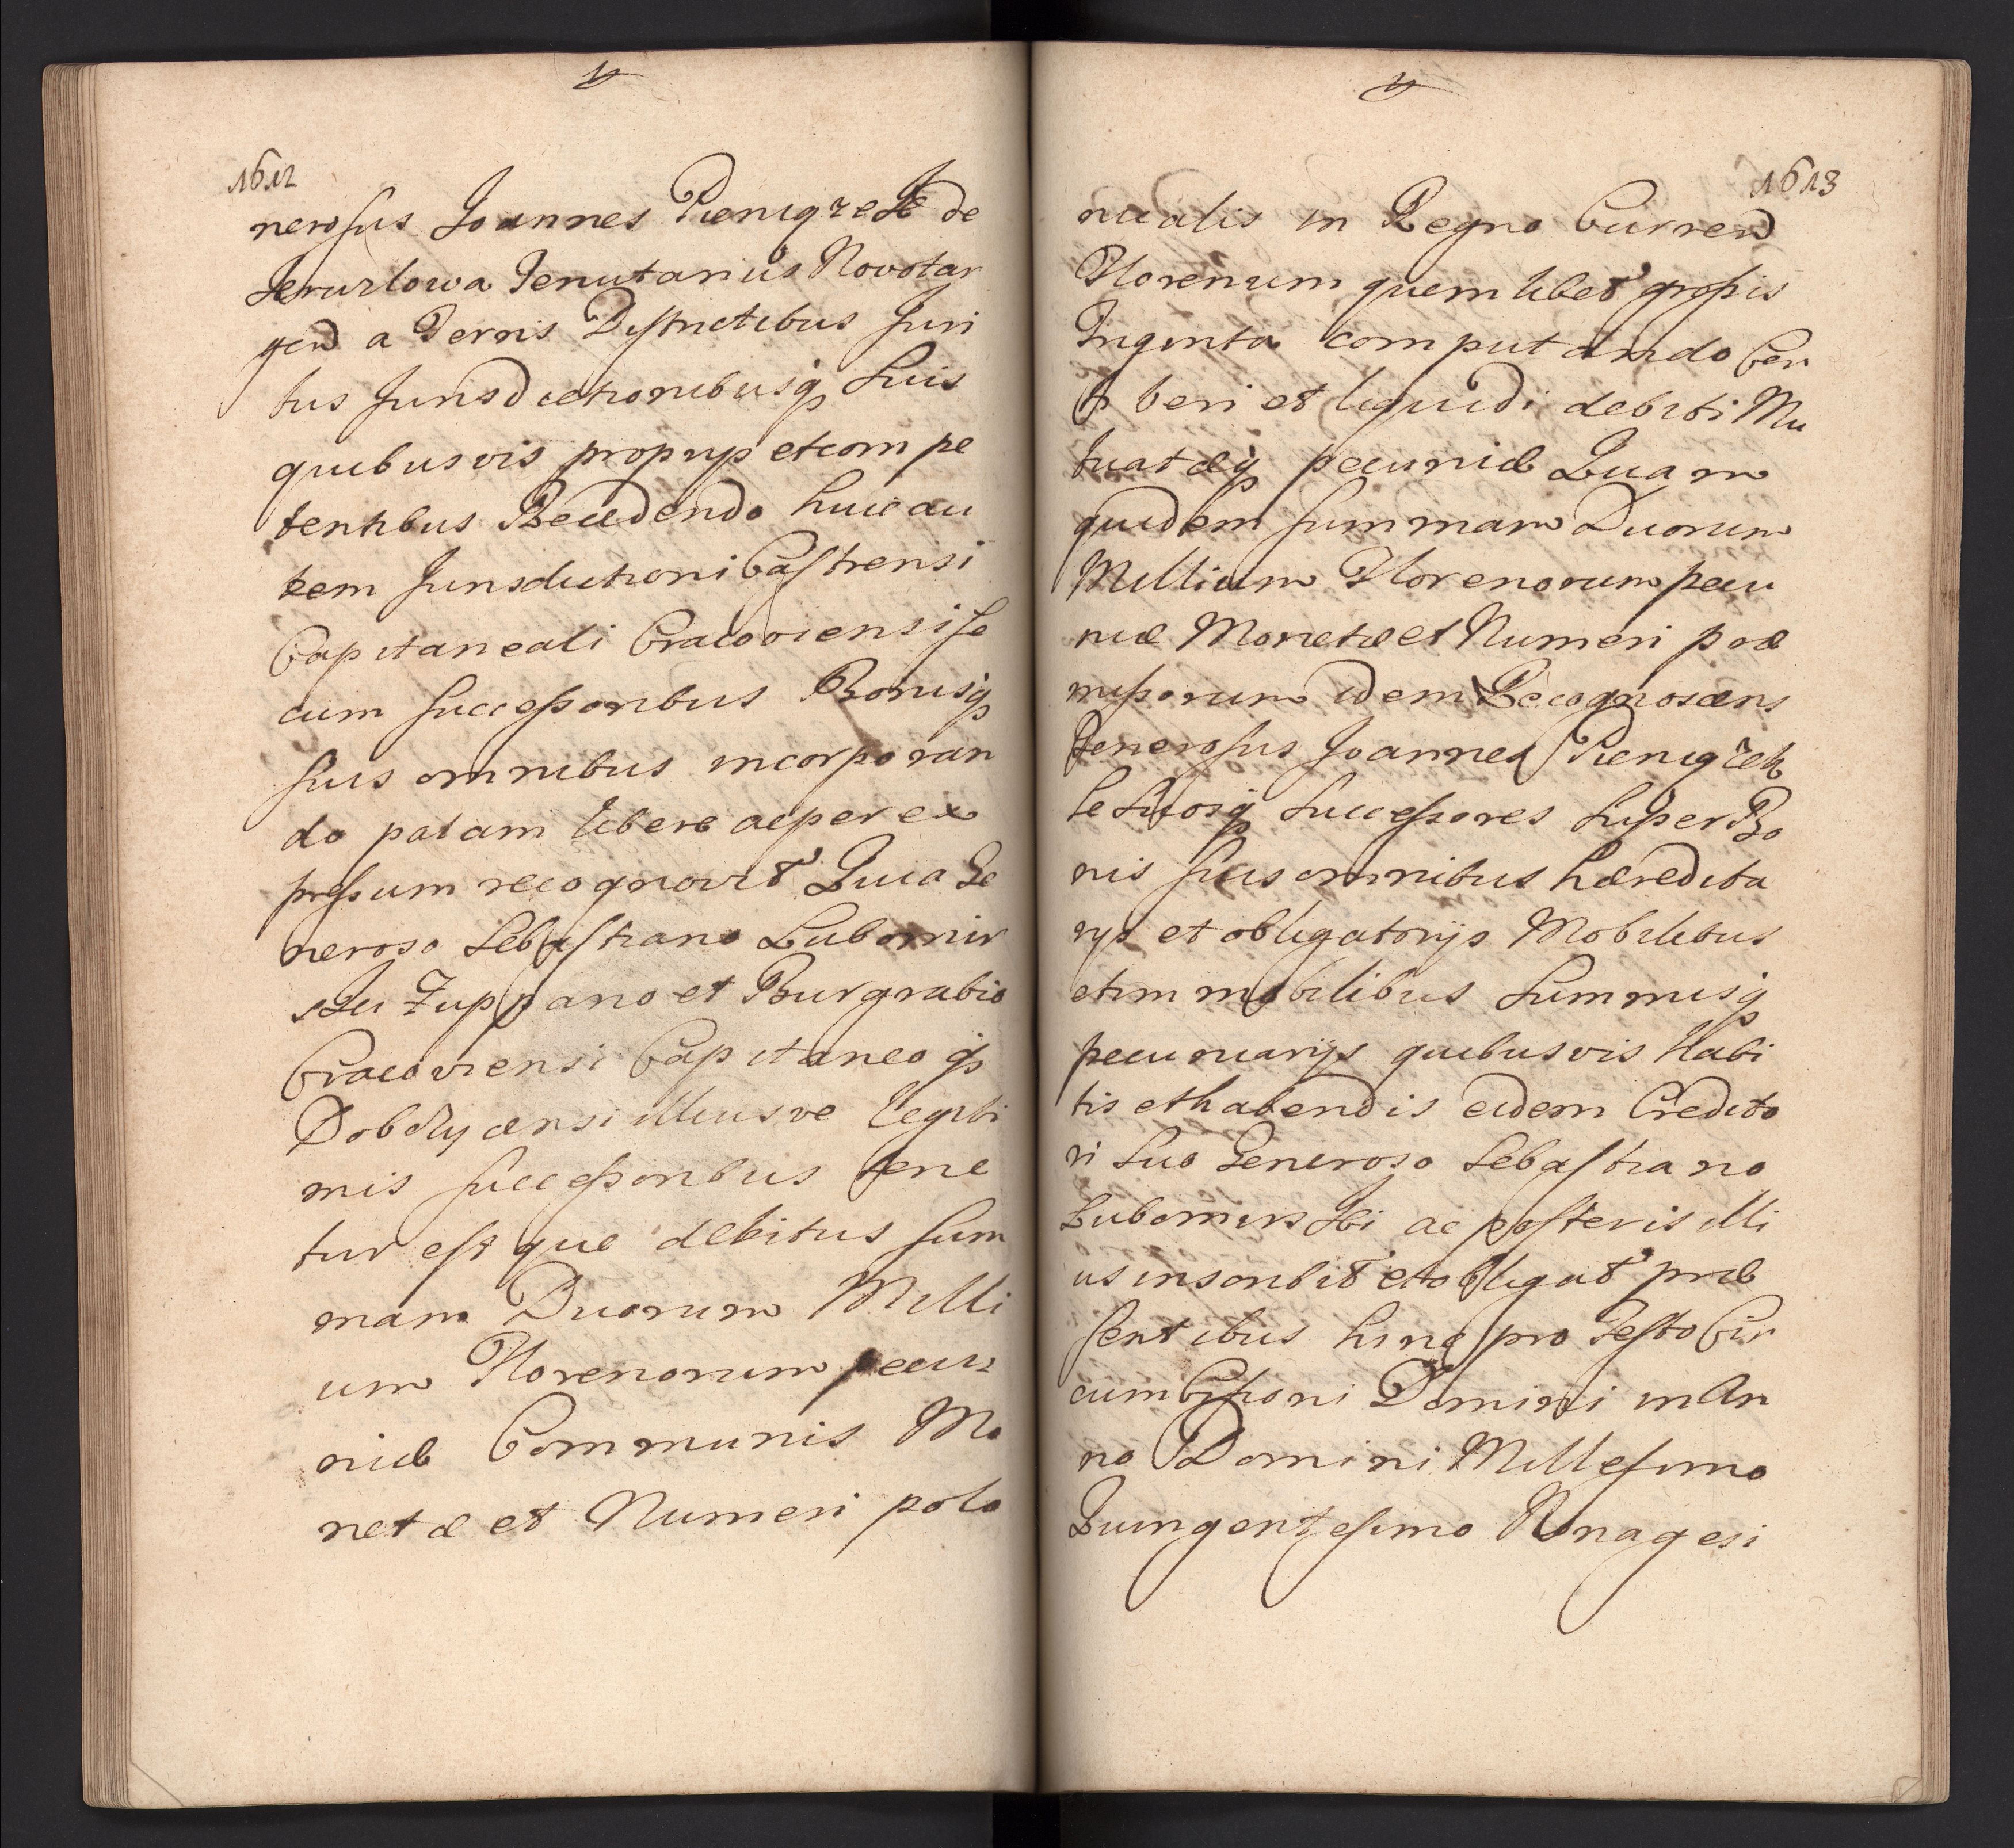 1612
nerosus Joannes Pieniązek de
Kruzlowa Tenutarius Novotar
gen a Terris Districtibus Juri
bus Jurisdictionibusq Suis
quibusvis proprijs et compe
tentibus Recedendo huic au
tem Jurisdictioni Castrensi
Capitaneali Cracoviensi se
cum successoribus Bonisq
suis omnibus incorporan
do palam libere ac per ex
pressum recognovit Quia Ge
neroso Sebastiano Lubomir
ski Zuppano et Burgrabio
Cracoviensi Capitaneo q
Dobczycensi illiusve legiti
mis successoribus tene
tur est que debitus sum
mam Duorum Milli
um Florenorum pecu
niæ Communis Mo
netæ et Numeri polo
1613
nicalis in Regno Curren
Florenum quemlibet grossis
Triginta computando Ceri
beri et liquidi debiti Mu
tuatæq pecuniæ Quam
quidem summam Duorum
Millium Florenorum pecu
niæ Monetæ et Numeri præ
missorum idem Recognoscens
Generosus Joannes Pieniązek
Se Suosq Successores Super Bo
nis suis omnibus hæredita
rijs et obligatorijs Mobilibus
et immobilibus Summisq
pecuniarijs quibusvis habi
tis et habendis eidem Credito
ri Suo Generoso Sebastiano
Lubomirski ac posteris illi
us inscribit et obligat præ
sentibus hinc pro Festo Cir
cumcisioni Domini in An
no Domini Millesimo
Quingentesimo Nonagesi